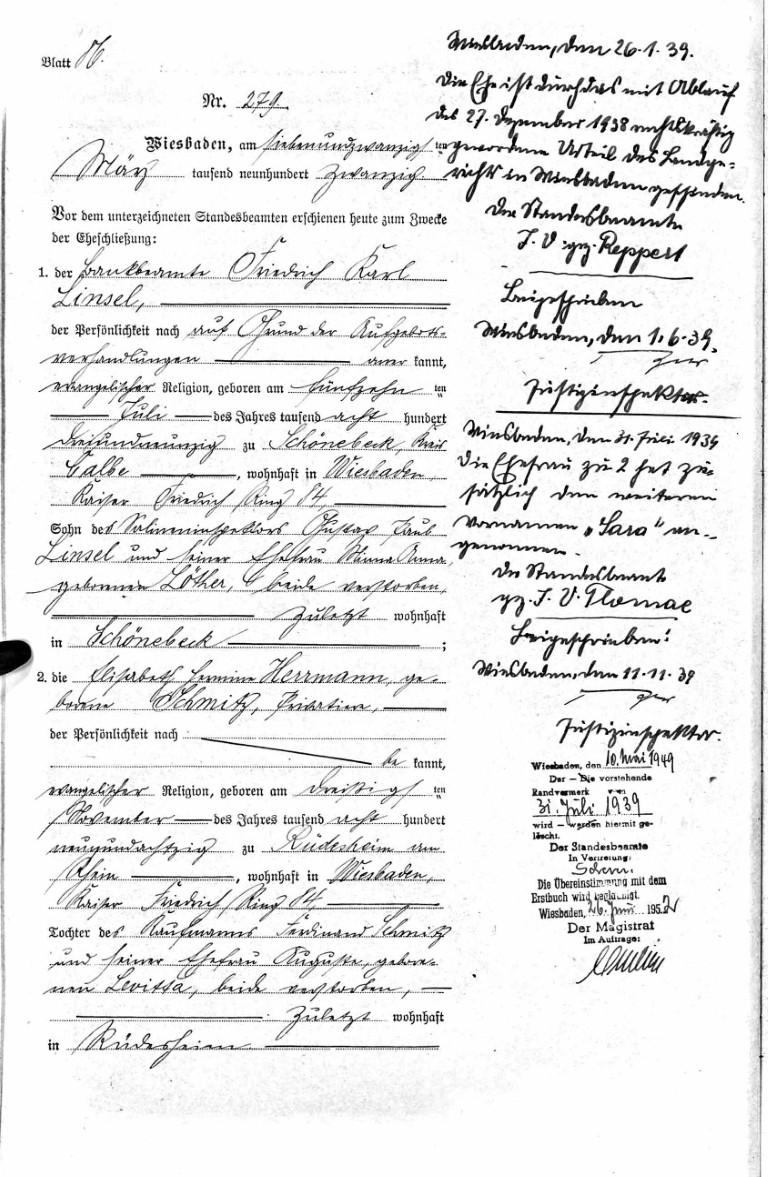 Blatt 86.
Nr. 279.
Wiesbaden, am siebenundzwanzigsten
März tausend neunhundert zwanzig.
Vor dem unterzeichneten Standesbeamten erschienen heute zum Zwecke
der Eheschließung:
1. der Bankbeamte Friedrich Karl
Linsel,
der Persönlichkeit nach auf Grund der Aufgebots-
verhandlungen aner kannt,
evangelischer Religion, geboren am fünfzehn ten
Juli des Jahres tausend acht hundert
dreiundneunzig zu Schönebeck, Kreis
Calbe, wohnhaft in Wiesbaden,
Kaiser Friedrich Ring 84,
Sohn des Salineninspektors Gustav Paul
Linsel und seiner Ehefrau Minna Anna,
geborenen Löther, beide verstorben,
zuletzt wohnhaft
in Schönebeck ;
2. die Elisabeth Hermine Herrmann, ge-
borene Schmitz, Privatiere,
der Persönlichkeit nach
be kannt,
evangelischer Religion, geboren am dreißigsten
November des Jahres tausend acht hundert
neunundachtzig zu Rüdesheim am
Rhein, wohnhaft in Wiesbaden,
Kaiser Friedrich Ring 84,
Tochter des Kaufmanns Ferdinand Schmitz
und seiner Ehefrau Auguste, gebore-
nen Levitta, beide verstorben,
zuletzt wohnhaft
in Rüdesheim.
Wiesbaden, den 26.1.39.
Die Ehe ist durch das mit Ablauf
des 27. Dezember 1938 rechtskräftig
gewordene Urteil des Landge-
richts in Wiesbaden geschieden.
Der Standesbeamte
J. V. gez. Reppert
Beigeschrieben
Wiesbaden, den 1.6.39.
Justizinspektor.
Wiesbaden, den 31. Juli 1939
Die Ehefrau zu 2 hat zu-
sätzlich den weiteren
Vornamen „Sara" an-
genommen.
Der Standesbeamte
gz. J. V.
Beigeschrieben!
Wiesbaden, den 11.11.39
Justizinspektor.
Wiesbaden, den 10. Mai 1949
Der – Die vorstehende
Randvermerk von
31. Juli 1939
wird – werden hiermit ge-
löscht.
Der Standesbeamte
In Vertretung:
Die Übereinstimmung mit dem
Erstbuch wird beglaubigt.
Wiesbaden, 26. Juni 1952
Der Magistrat
Im Auftrage: